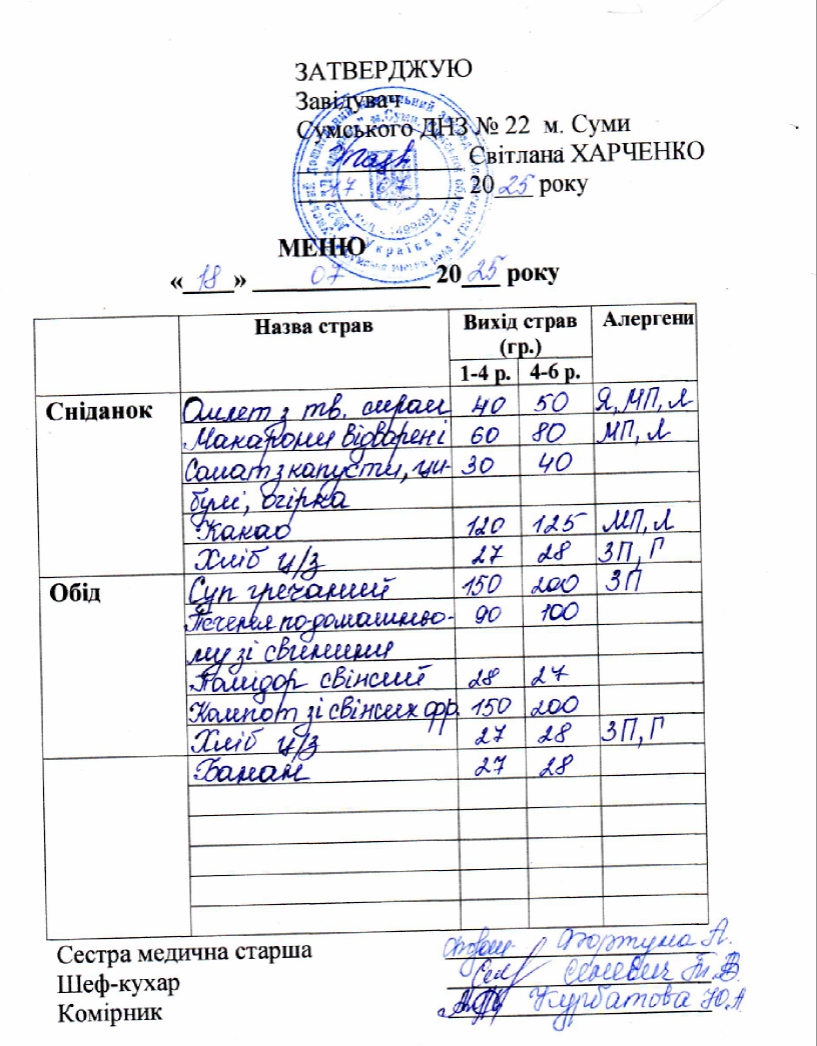 ЗАТВЕРДЖУЮ
Завідувач
Сумського ДНЗ № 22 м. Суми
Світлана ХАРЧЕНКО
17. 07 2025 року
МЕНЮ
«18» 07 2025 року
Назва страв Вихід страв (гр.) Алергени
1-4 р. 4-6 р.
Сніданок Омлет з тв. сиром 40 50 Я, МП, Л
Макарони відварені 60 80 МП, Л
Салат з капусти, ци- 30 40
булі, огірка
Какао 120 125 МП, Л
Хліб ц/з 27 28 ЗП, Г
Обід Суп гречаний 150 200 ЗП
Печеня по домашньо- 90 100
му зі свинини
Помідор свіжий 28 27
Компот зі свіжих фр. 150 200
Хліб ц/з 27 28 ЗП, Г
Банан 27 28
Сестра медична старша Фортуна А.
Шеф-кухар
Комірник Курбатова Ю.А